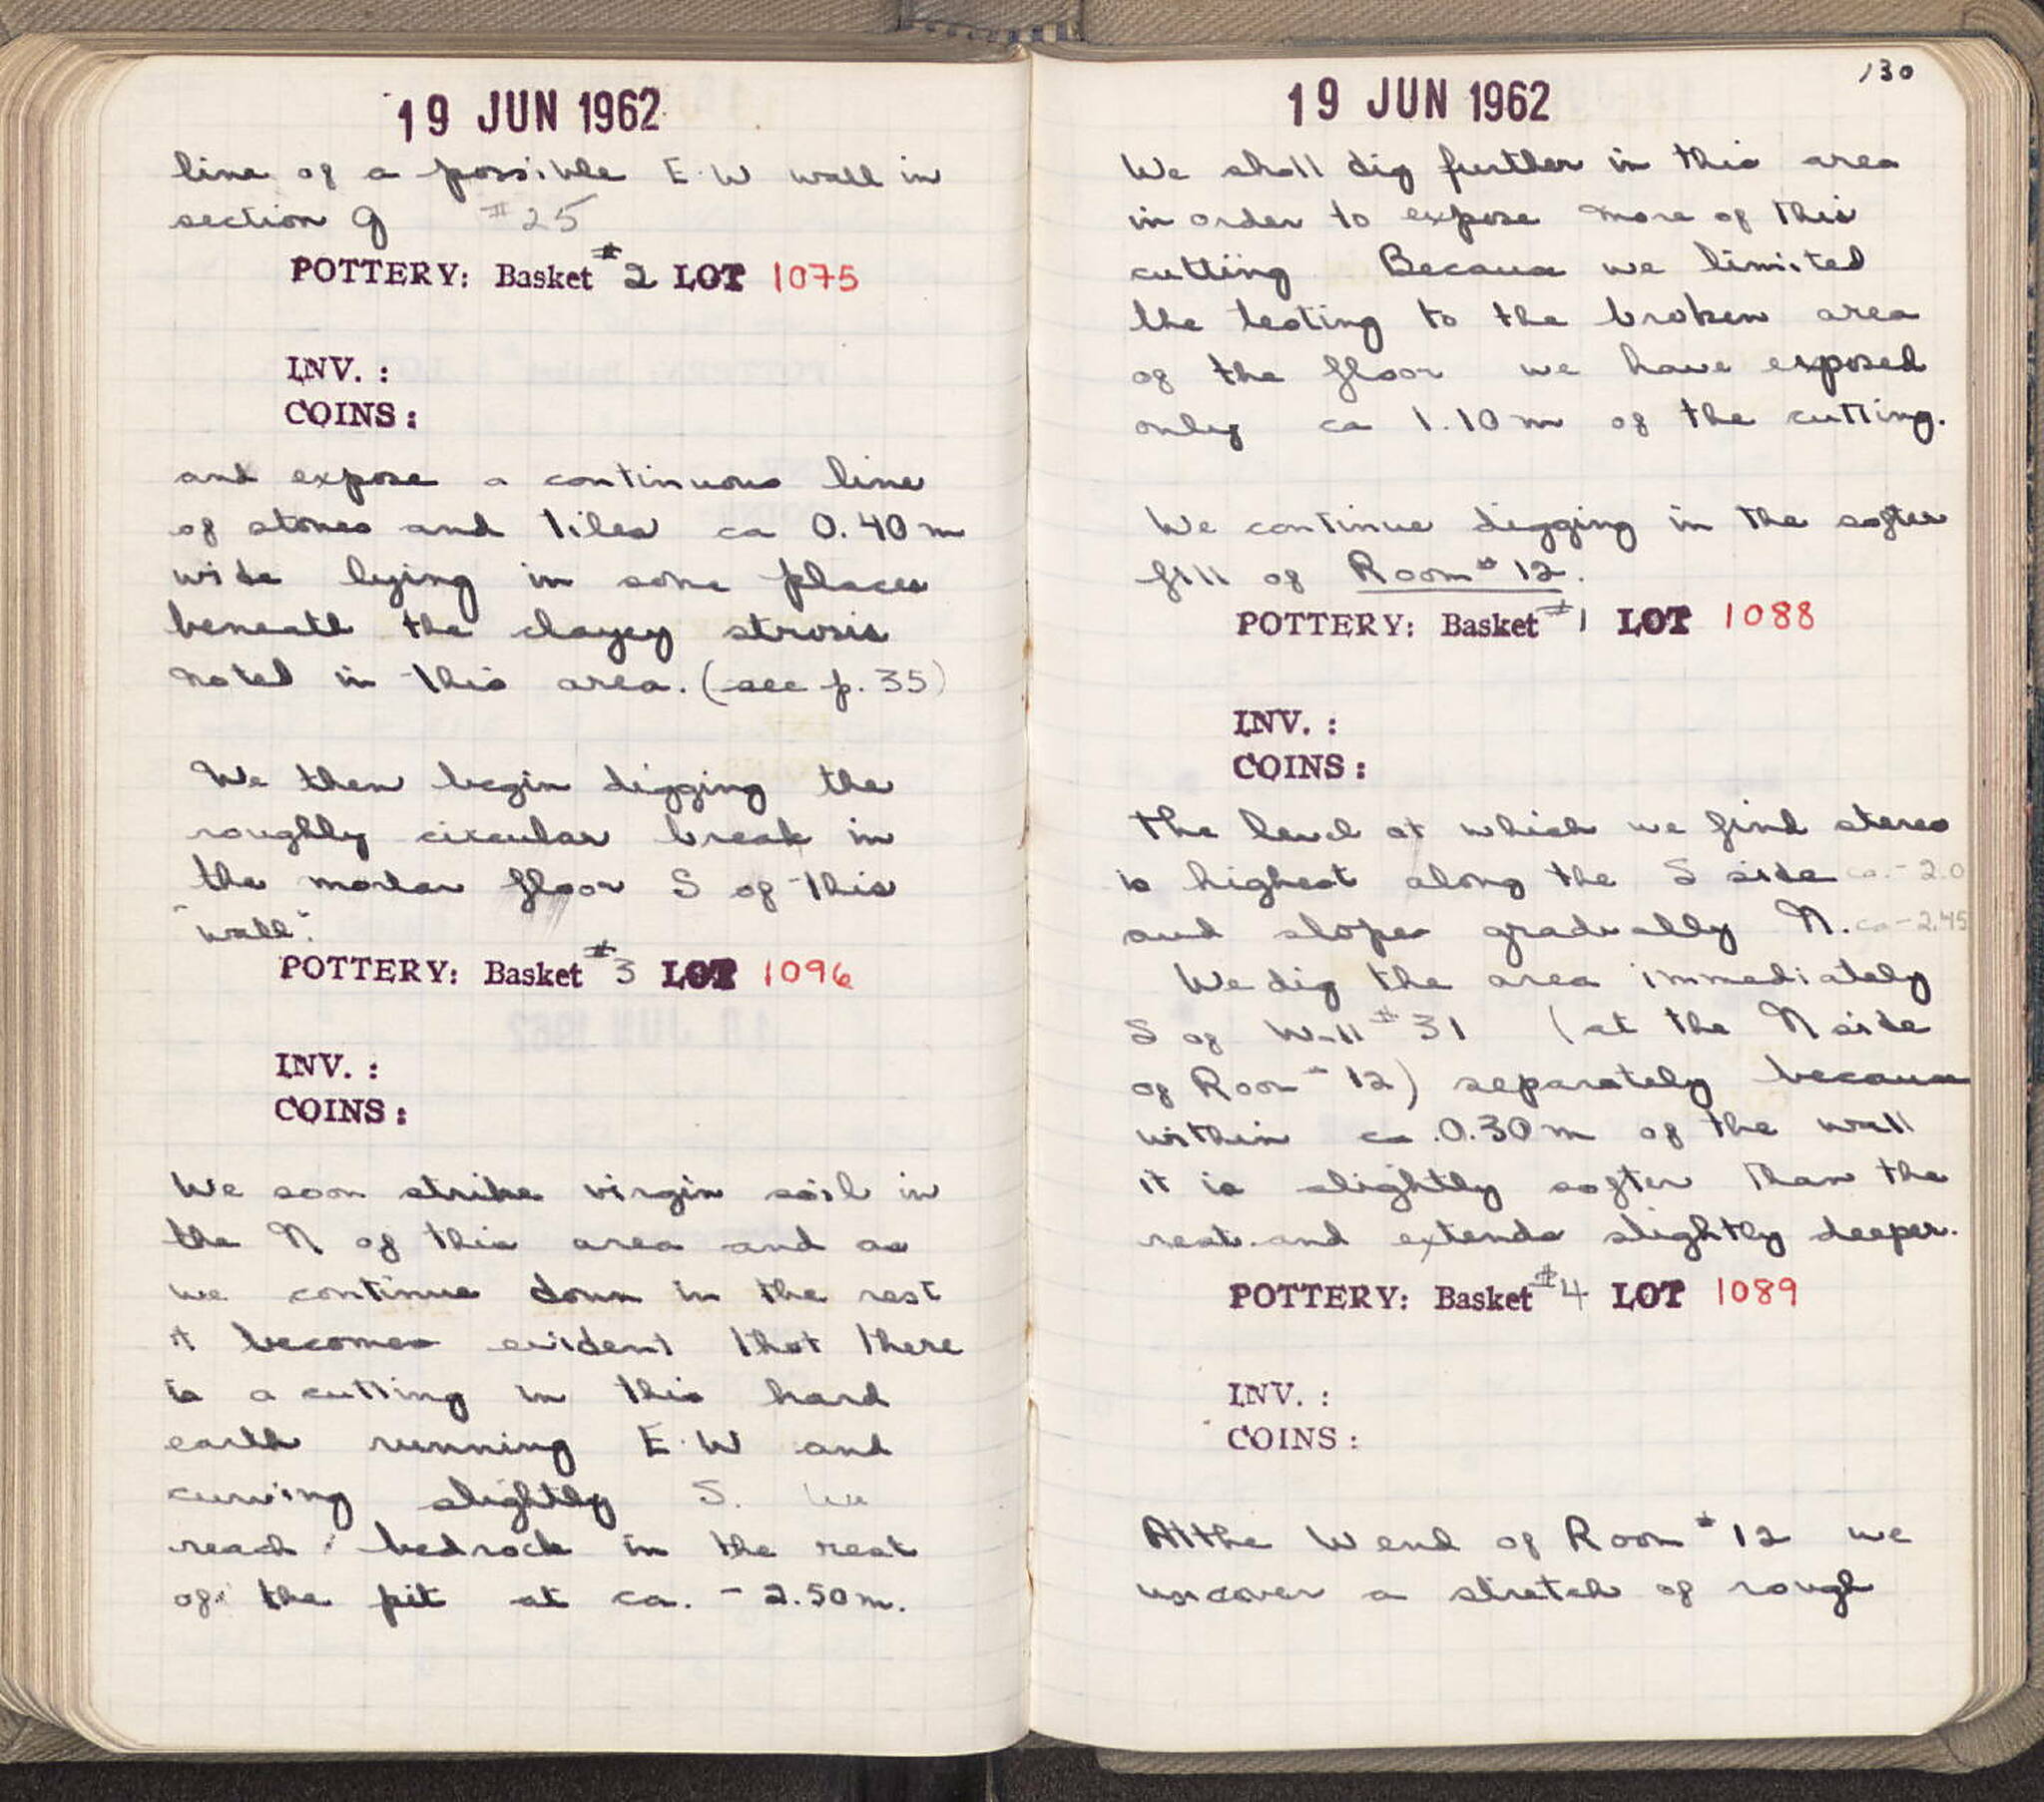 19 JUN 1962
line of a possible E-W wall in
section g #25
POTTERY: Basket #2 LOT 1075
INV. :
COINS:
and expose a continuous line
of stones and tiles ca 0.40m
wide lying in some places
beneath the clayey strosis
noted in this area. (see p. 35)
We then begin digging the
roughly circular break in
the mortar floor S of this
"wall".
POTTERY: Basket #3 LOT 1096
INV. :
COINS:
We soon strike virgin soil in
the N of this area and as
we continue down in the rest
it becomes evident that there
is a cutting in this hard
earth running E-W and
curving slightly S. We
reach bedrock in the rest
of the pit at ca. - 2.50m.
130
19 JUN 1962
We shall dig further in this area
in order to expose more of this
cutting Because we limited
the testing to the broken area
of the floor we have exposed
only ca 1.10m of the cutting.
We continue digging in the softer
fill of Room #12.
POTTERY: Basket #1 LOT 1088
INV. :
COINS:
The level at which we find stereo
is highest along the S side ca. - 2.0
and slopes gradually N. ca - 2.45
We dig the area immediately
S of Wall #31 (at the N side
of Room #12) separately because
within ca. 0.30m of the wall
it is slightly softer than the
rest and extends slightly deeper.
POTTERY: Basket #4 LOT 1089
INV. :
COINS:
At the W end of Room #12 we
uncover a stretch of rough